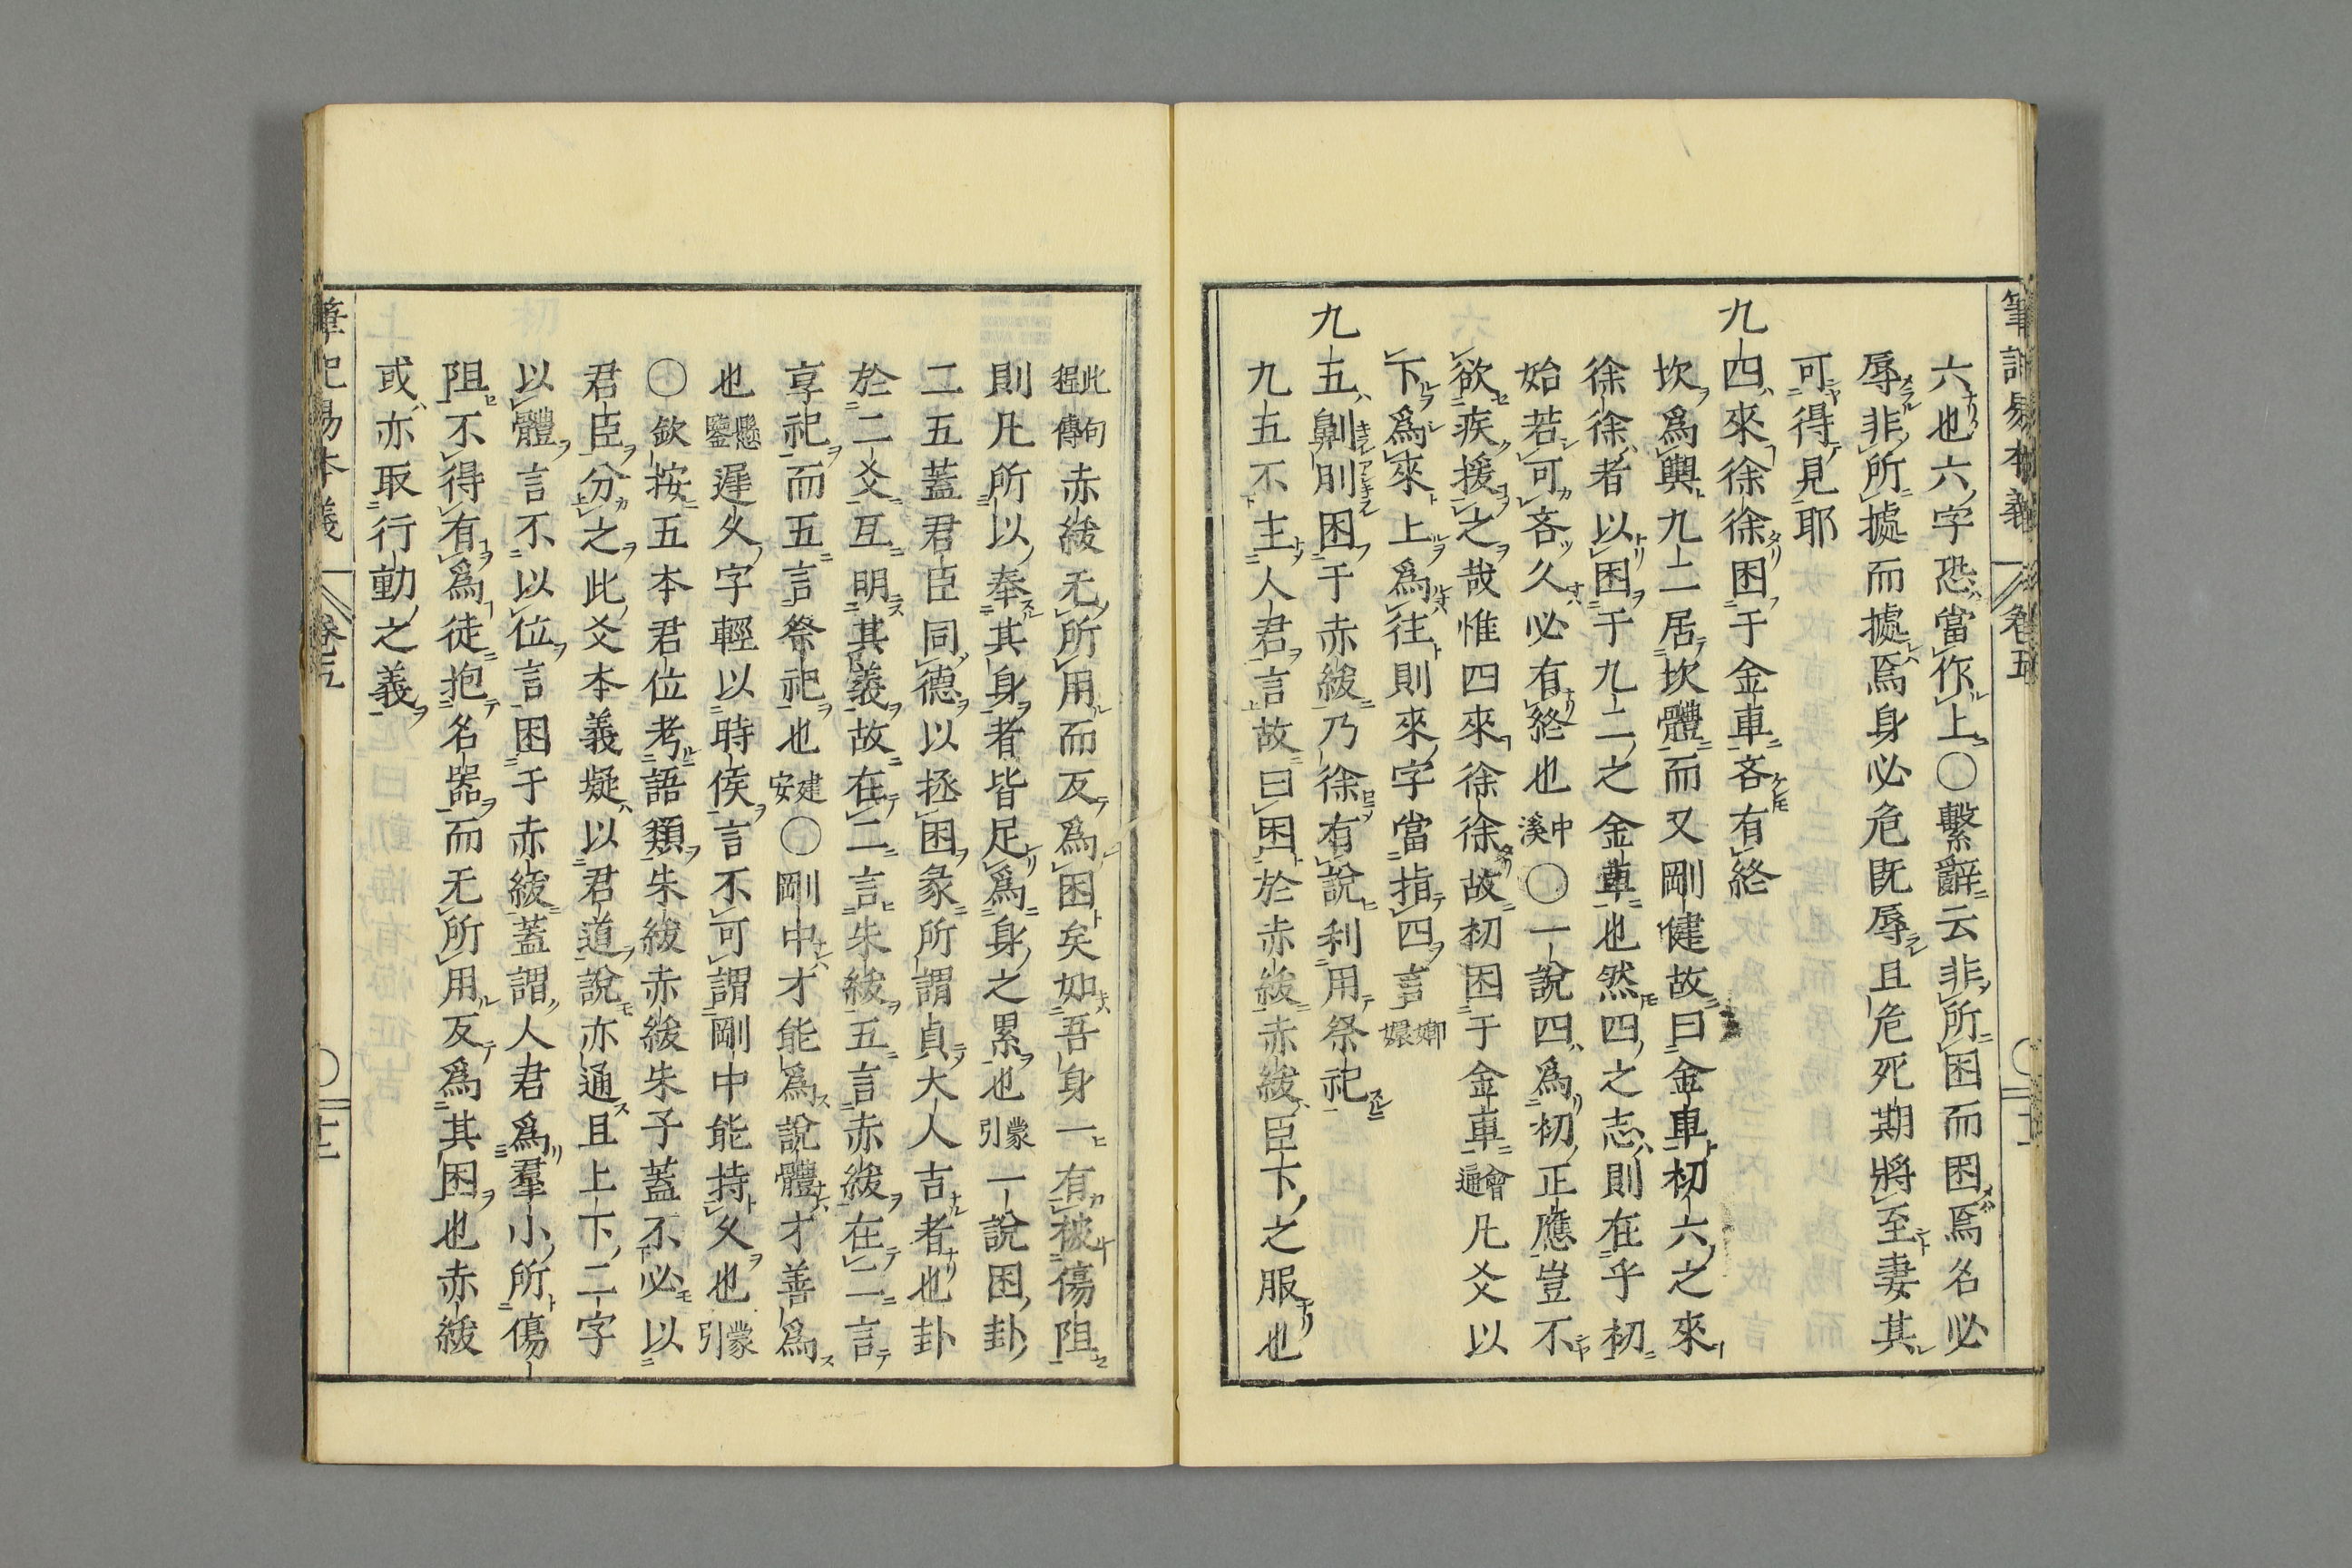 筆記易本義 卷五 〇 十一
六也六字恐當作上〇繫辭云非所困而困焉名必
辱非所據而據焉身必危旣辱且危死期將至妻其
可得見耶
九四來徐徐困于金車吝有終
坎爲輿九二居坎體而又剛健故曰金車初六之來
徐徐者以困于九二之金車也然四之志則在乎初
始若可吝久必有終也中溪〇一說四爲初正應豈不
欲疾援之哉惟四來徐徐故初困于金車會通凡爻以
下爲來上爲往則來字當指四言嫏嬛
九五劓刖困于赤紱乃徐有說利用祭祀
九五不主人君言故曰困於赤紱赤紱臣下之服也
此句程傳赤紱无所用而反爲困矣如吾身一有被傷阻
則凡所以奉其身者皆足爲身之累也蒙引一說困卦
二五蓋君臣同德以拯困彖所謂貞大人吉者也卦
於二爻互明其義故在二言朱紱五言赤紱在二言
享祀而五言祭祀也建安〇剛中才能爲說體才善爲
也懸鑒遲久字輕以時俟言不可謂剛中能持久也蒙引
〇欽按五本君位考語類朱紱赤紱朱子蓋不必以
君臣分之此爻本義疑以君道說亦通且上下二字
以體言不以位言困于赤紱蓋謂人君爲羣小所傷
阻不得有爲徒抱名器而无所用反爲其困也赤紱
或亦取行動之義
筆記易本義 卷五 〇 十二